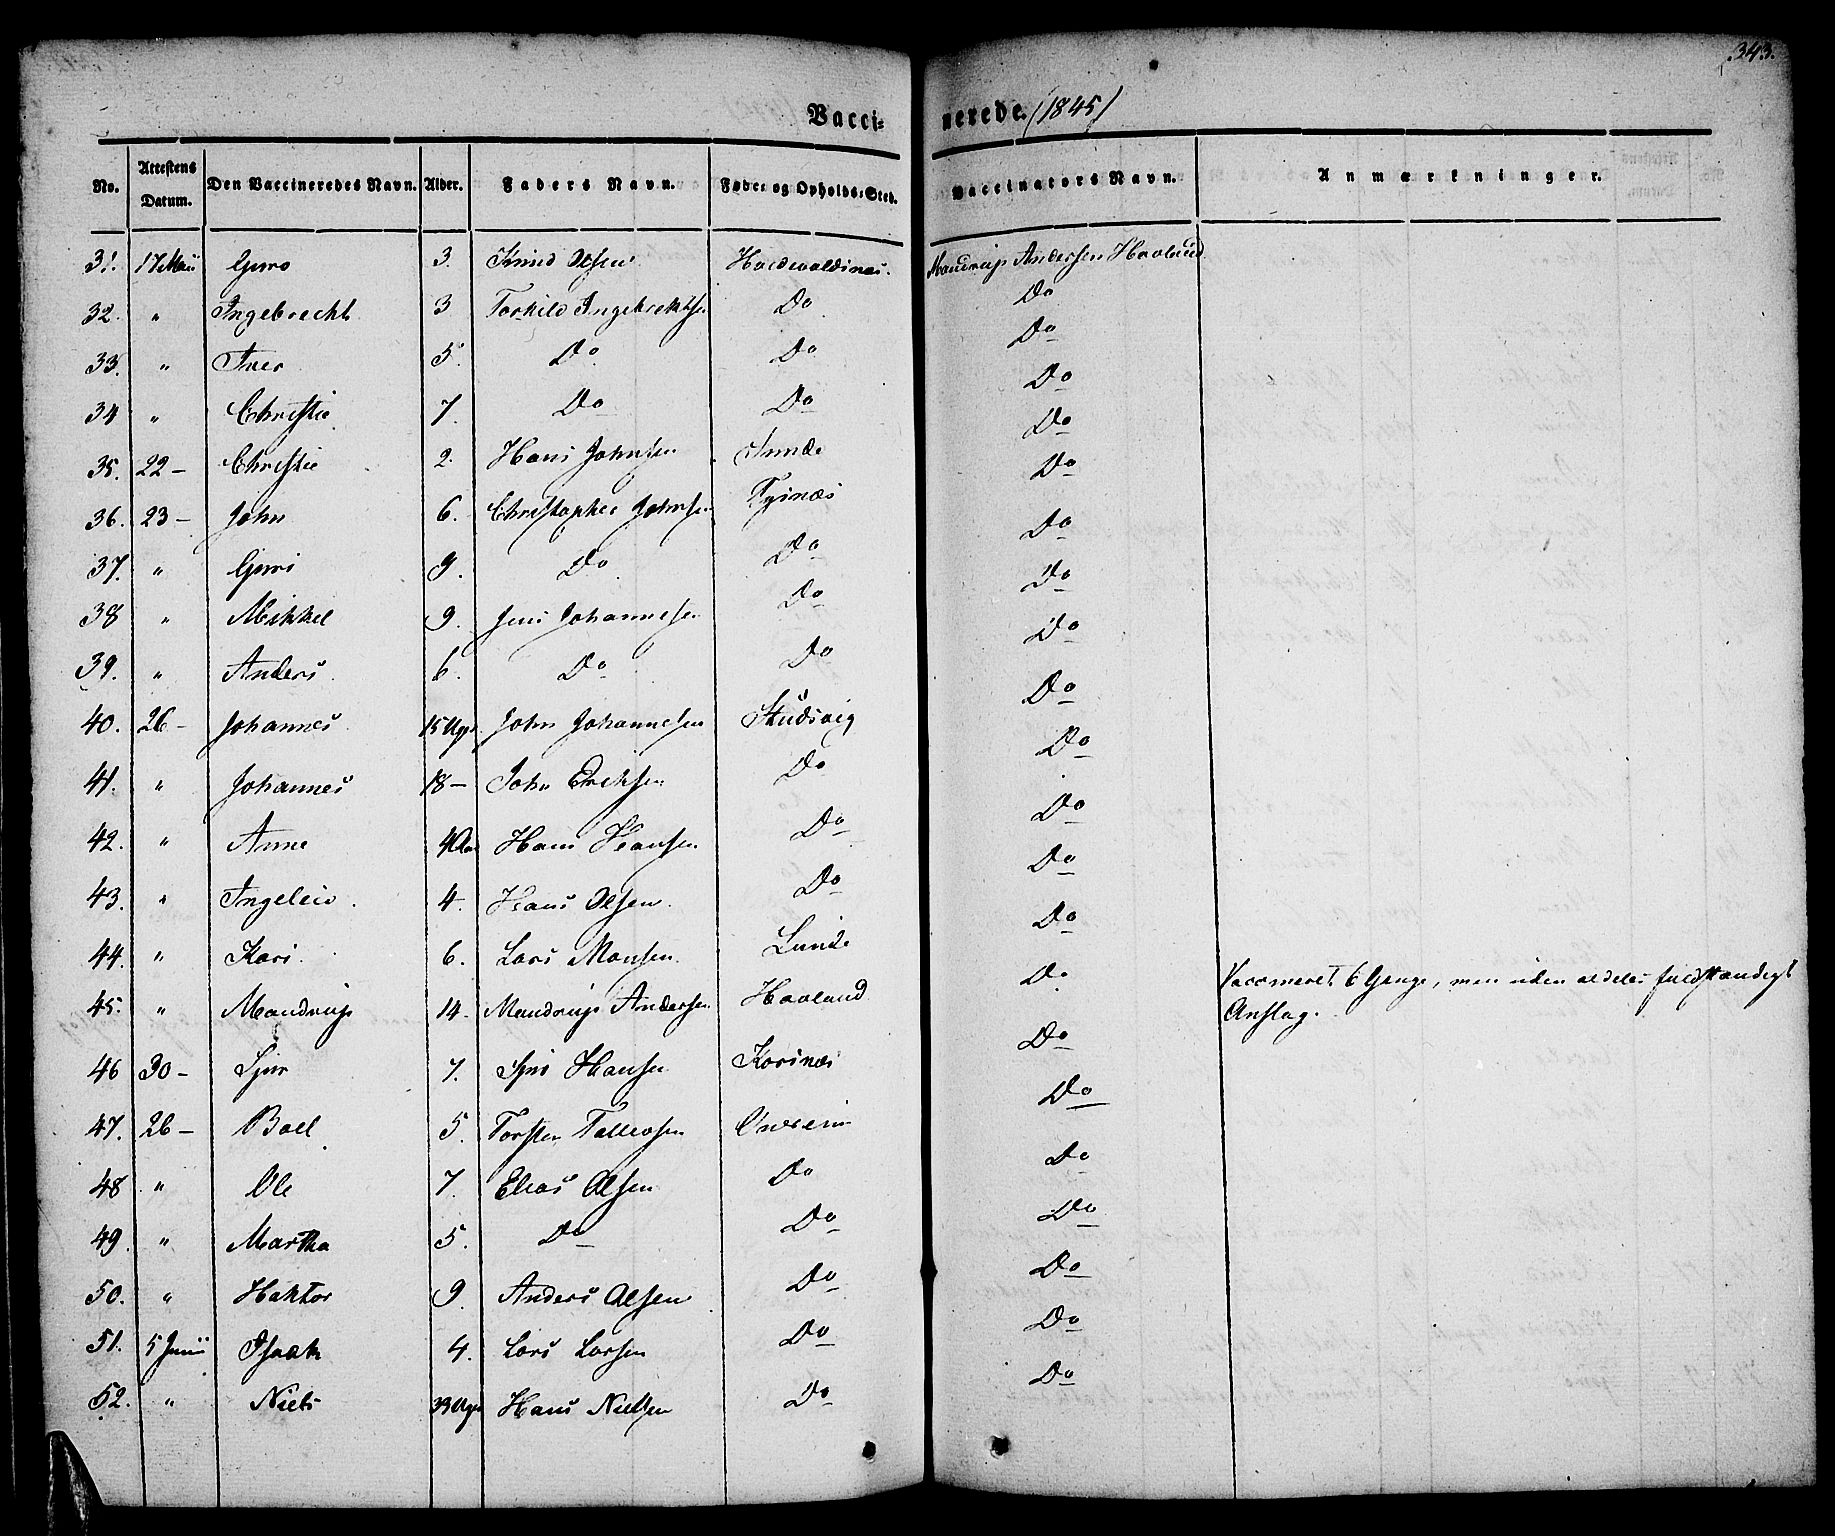 343.
Vaccinerede. (1845)
No. Attestens Datum. Den Vaccineredes Navn. Alder. Faders Navn. Føde- og Opholds-Sted. Vaccinators Navn. Anmærkninger.
31. 17 Maii Guro 3. Knud Olsen Mandrup Andersen Havland
32. " Ingebrecht 3 Torkild Ingebrechtsen Do Do
33. " Iver 5. Do Do Do
34 " Christie 7. Do Do Do
35. 22 – Christie 2. Hans Johnsen Sunde Do
36. 23 – John 6. Christopher Johnsen Tysnæs Do
37. " Guri 9. Do Do Do
38 " Mikkel 9. Jens Johannesen Do Do
39. " Anders 6. Do Do Do
40. 26 – Johannes 15 Uger John Johannesen Studsvig Do
41. " Johannes 18 – John Eriksen Do Do
42. " Anne 4 Aar Hans Hansen Do Do
43. " Ingeleiv 4. Hans Olsen Do Do
44. " Kari 6. Lars Monsen Lunde Do
45. " Mandrup 14. Mandrup Andersen Havland Do Vaccineret 6 Gange, men uden aldeles fuldstændigt
Anslag.
46 30 – Sjur 7. Sjur Hansen Korsnæs Do
47. 26 – Boel 5. Torsten Tollevsen Do
48 " Ole 7. Elias Olsen Do Do
49. " Martha 5. Do Do Do
50. " Haktor 9. Anders Olsen Do Do
51. 5 Junii Isaak 4. Lars Larsen Do Do
52. " Niels 39 Uger Hans Nielsen Do Do